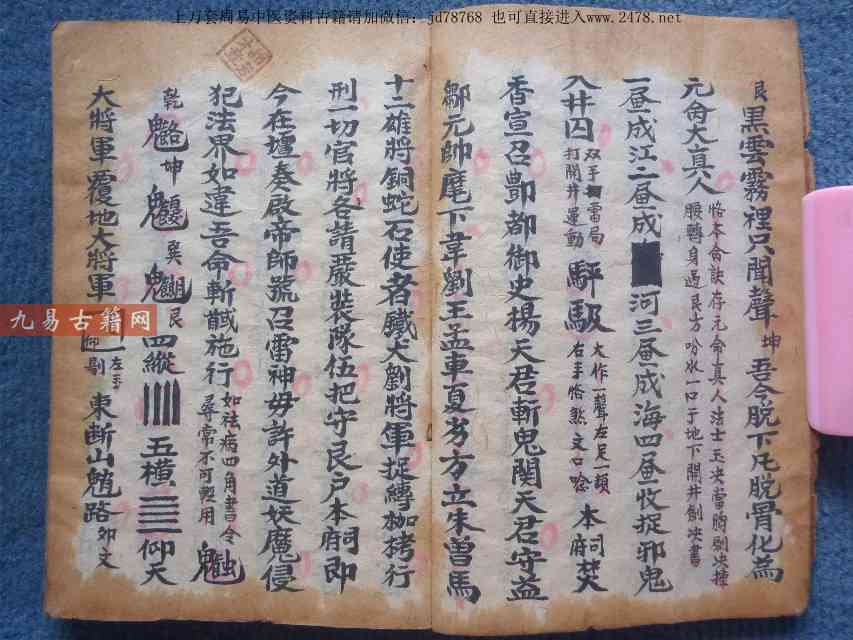 上万套周易中医资料古籍请加微信:jd78768 也可直接进入www.2478.net
艮黑雲霧裡只聞聲坤吾今脫下凡脫骨化為
元命大真人恪本命訣存元命真人法士玉决當胸劍决捶
腰轉身過艮方吟水一口于地下開井劍决書
一昼成江二昼成河三昼成海四昼收捉邪鬼
入井囚双手雷局打開井運動大作一聲左足一頓右手恪煞文口唸本司府焚
香宣召酆都御史揚天君斬鬼関天君守益
鄒元帥麾下韋劉王孟車夏方立朱曽馬
十二雄將銅蛇石使者鐵大劉將軍捉縛枷栲行
刑一切官將各請嚴裝隊伍把守艮户本府祠即
今在壇奏啟帝師號召雷神毋許外道妖魔侵
犯法界如違吾命斬馘施行如祛病四角書令尋常不可輕用
乾坤巽艮四縱五橫仰天
大將軍覆地大將軍左手東断山路卯文
九易古籍网